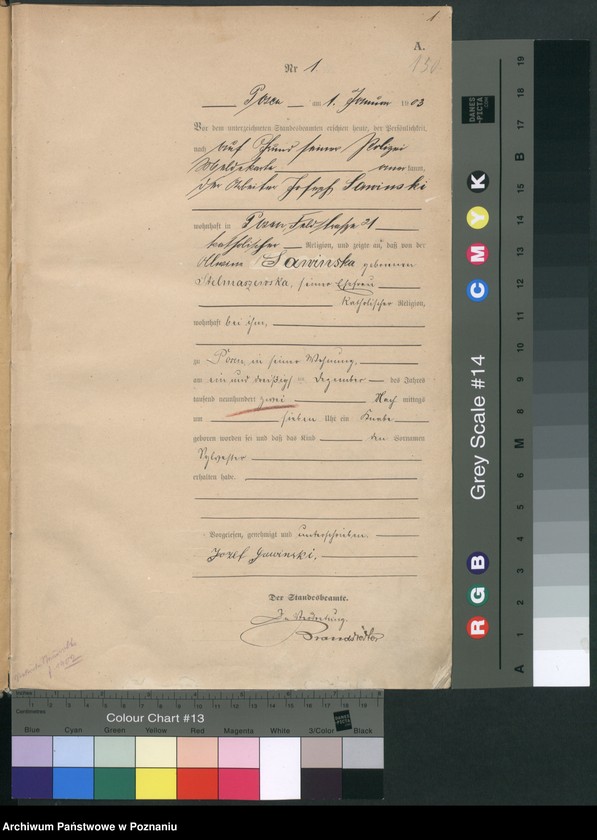 1
A.
130
Nr 1.
Posen am 1. Januar 1903
Vor dem unterzeichneten Standesbeamten erschien heute, der Persönlichkeit
nach auf Grund seiner Polizei
Meldekarte kannt,
der Arbeiter Joseph Sawinski
wohnhaft in Posen, Feldstrasse 21
katholischer Religion, und zeigte an, daß von der
Sawinska geborenen
Stelmaszewska, seiner Ehefrau
katholischer Religion,
wohnhaft bei ihm,
zu Posen in seiner Wohnung,
am ein und dreißigsten Dezember des Jahres
tausend neunhundert zwei Nach mittags
um sieben Uhr ein Knabe
geboren worden sei und daß das Kind den Vornamen
Sylvester
erhalten habe.
Vorgelesen, genehmigt und unterschrieben.
Józef Sawinski.
Der Standesbeamte.
In Vertretung
DANES
PICTA
.COM
A 1 2 3 4 5 6 M 8 9 10 11 12 13 14 15 B 17 18 19
R G B Grey Scale #14 C M Y K
Inches
Centimetres
Colour Chart #13
DANES
PICTA
Blue Cyan Green Yellow Red Magenta White 3/Color Black
Archiwum Państwowe w Poznaniu